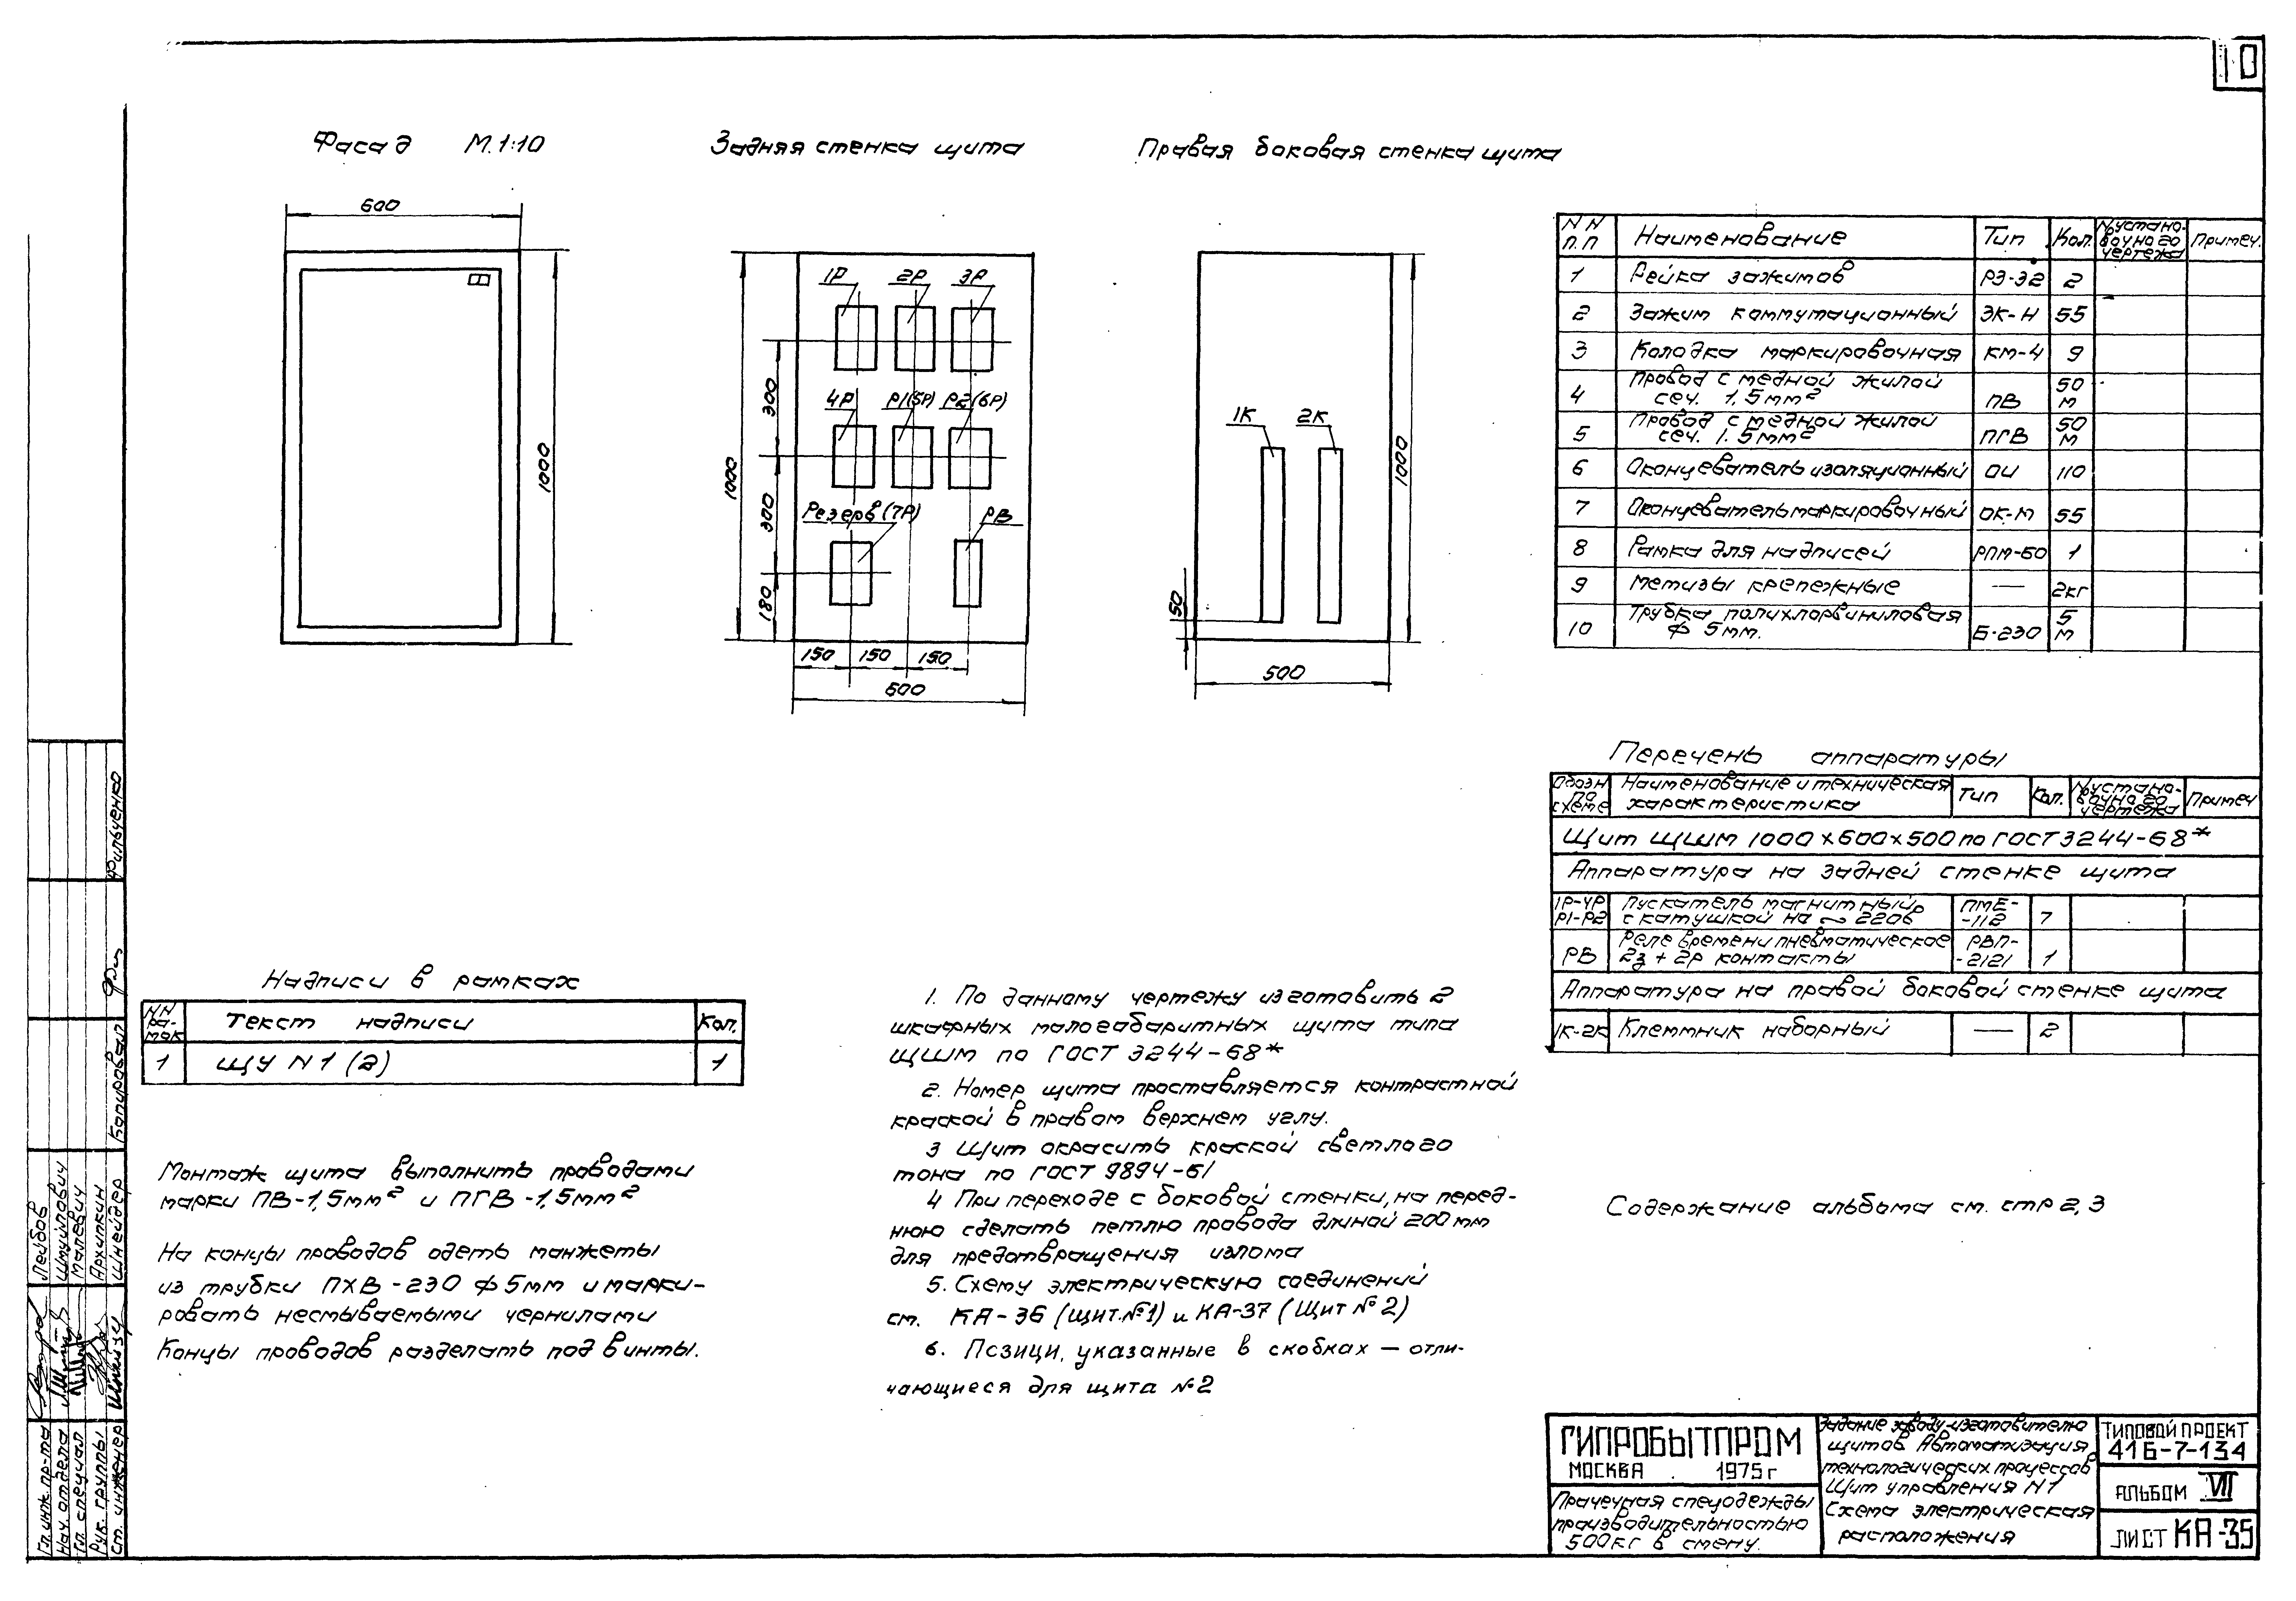 10
Фасад М.1:10
Задняя стенка щита
Правая боковая стенка щита
600
1000
1Р 2Р 3Р
4Р Р1(5Р) Р2(6Р)
Резерв(7Р) РВ
1000
300
300
180
150 150 150
600
1К 2К
1000
50
500
NN п.п Наименование Тип Кол. N установочного чертежа Примеч.
1 Рейка зажимов РЗ-32 2
2 Зажим коммутационный ЗК-Н 55
3 Колодка маркировочная КМ-4 9
4 Провод с медной жилой сеч. 1,5мм² ПВ 50 м
5 Провод с медной жилой сеч. 1.5мм² ПГВ 50 м
6 Оконцеватель изоляционный ОИ 110
7 Оконцеватель маркировочный ОК-М 55
8 Рамка для надписей РПМ-60 1
9 Метизы крепежные — 2кг
10 Трубка полихлорвиниловая ф 5мм. Б-230 5 м
Перечень аппаратуры
Обозн по схеме Наименование и техническая характеристика Тип Кол. N установочного чертежа Примеч
Щит ЩШМ 1000х600х500 по ГОСТ 3244-68*
Аппаратура на задней стенке щита
1Р-4Р Р1-Р2 Пускатель магнитный с катушкой на ~ 220в ПМЕ--112 7
РВ Реле времени пневматическое 2з + 2р контакты РВП--2121 1
Аппаратура на правой боковой стенке щита
1К-2К Клеммник наборный — 2
Надписи в рамках
NN рамок Текст надписи Кол.
1 ЩУ N1 (2) 1
Монтаж щита выполнить проводами
марки ПВ-1,5мм² и ПГВ-1,5мм²
На концы проводов одеть манжеты
из трубки ПХВ-230 ф 5мм и марки-
ровать несмываемыми чернилами
Концы проводов разделать под винты.
1. По данному чертежу изготовить 2
шкафных малогабаритных щита типа
ЩШМ по ГОСТ 3244-68*
2. Номер щита проставляется контрастной
краской в правом верхнем углу.
3 Щит окрасить краской светлого
тона по ГОСТ 9894-61
4 При переходе с боковой стенки, на перед-
нюю сделать петлю провода длиной 200мм
для предотвращения излома
5. Схему электрическую соединений
см. КА-36 (щит.№1) и КА-37 (Щит №2)
6. Позици, указанные в скобках — отли-
чающиеся для щита №2
Содержание альбома см. стр 2,3
ГИПРОБЫТПРОМ
МОСКВА 1975г
Прачечная спецодежды
производительностью
500кг в смену.
Задание заводу-изготовителю
щитов Автоматизация
технологических процессов
Щит управления N1
Схема электрическая
расположения
ТИПОВОЙ ПРОЕКТ
416-7-134
АЛЬБОМ VII
ЛИСТ КА-35
Гл. инж. пр-та Лейбов
Нач. отдела Шмуилович
Гл. специал Малевич
Рук. группы Архипкин
Ст. инженер Шнейдер
Копировал Фильченко